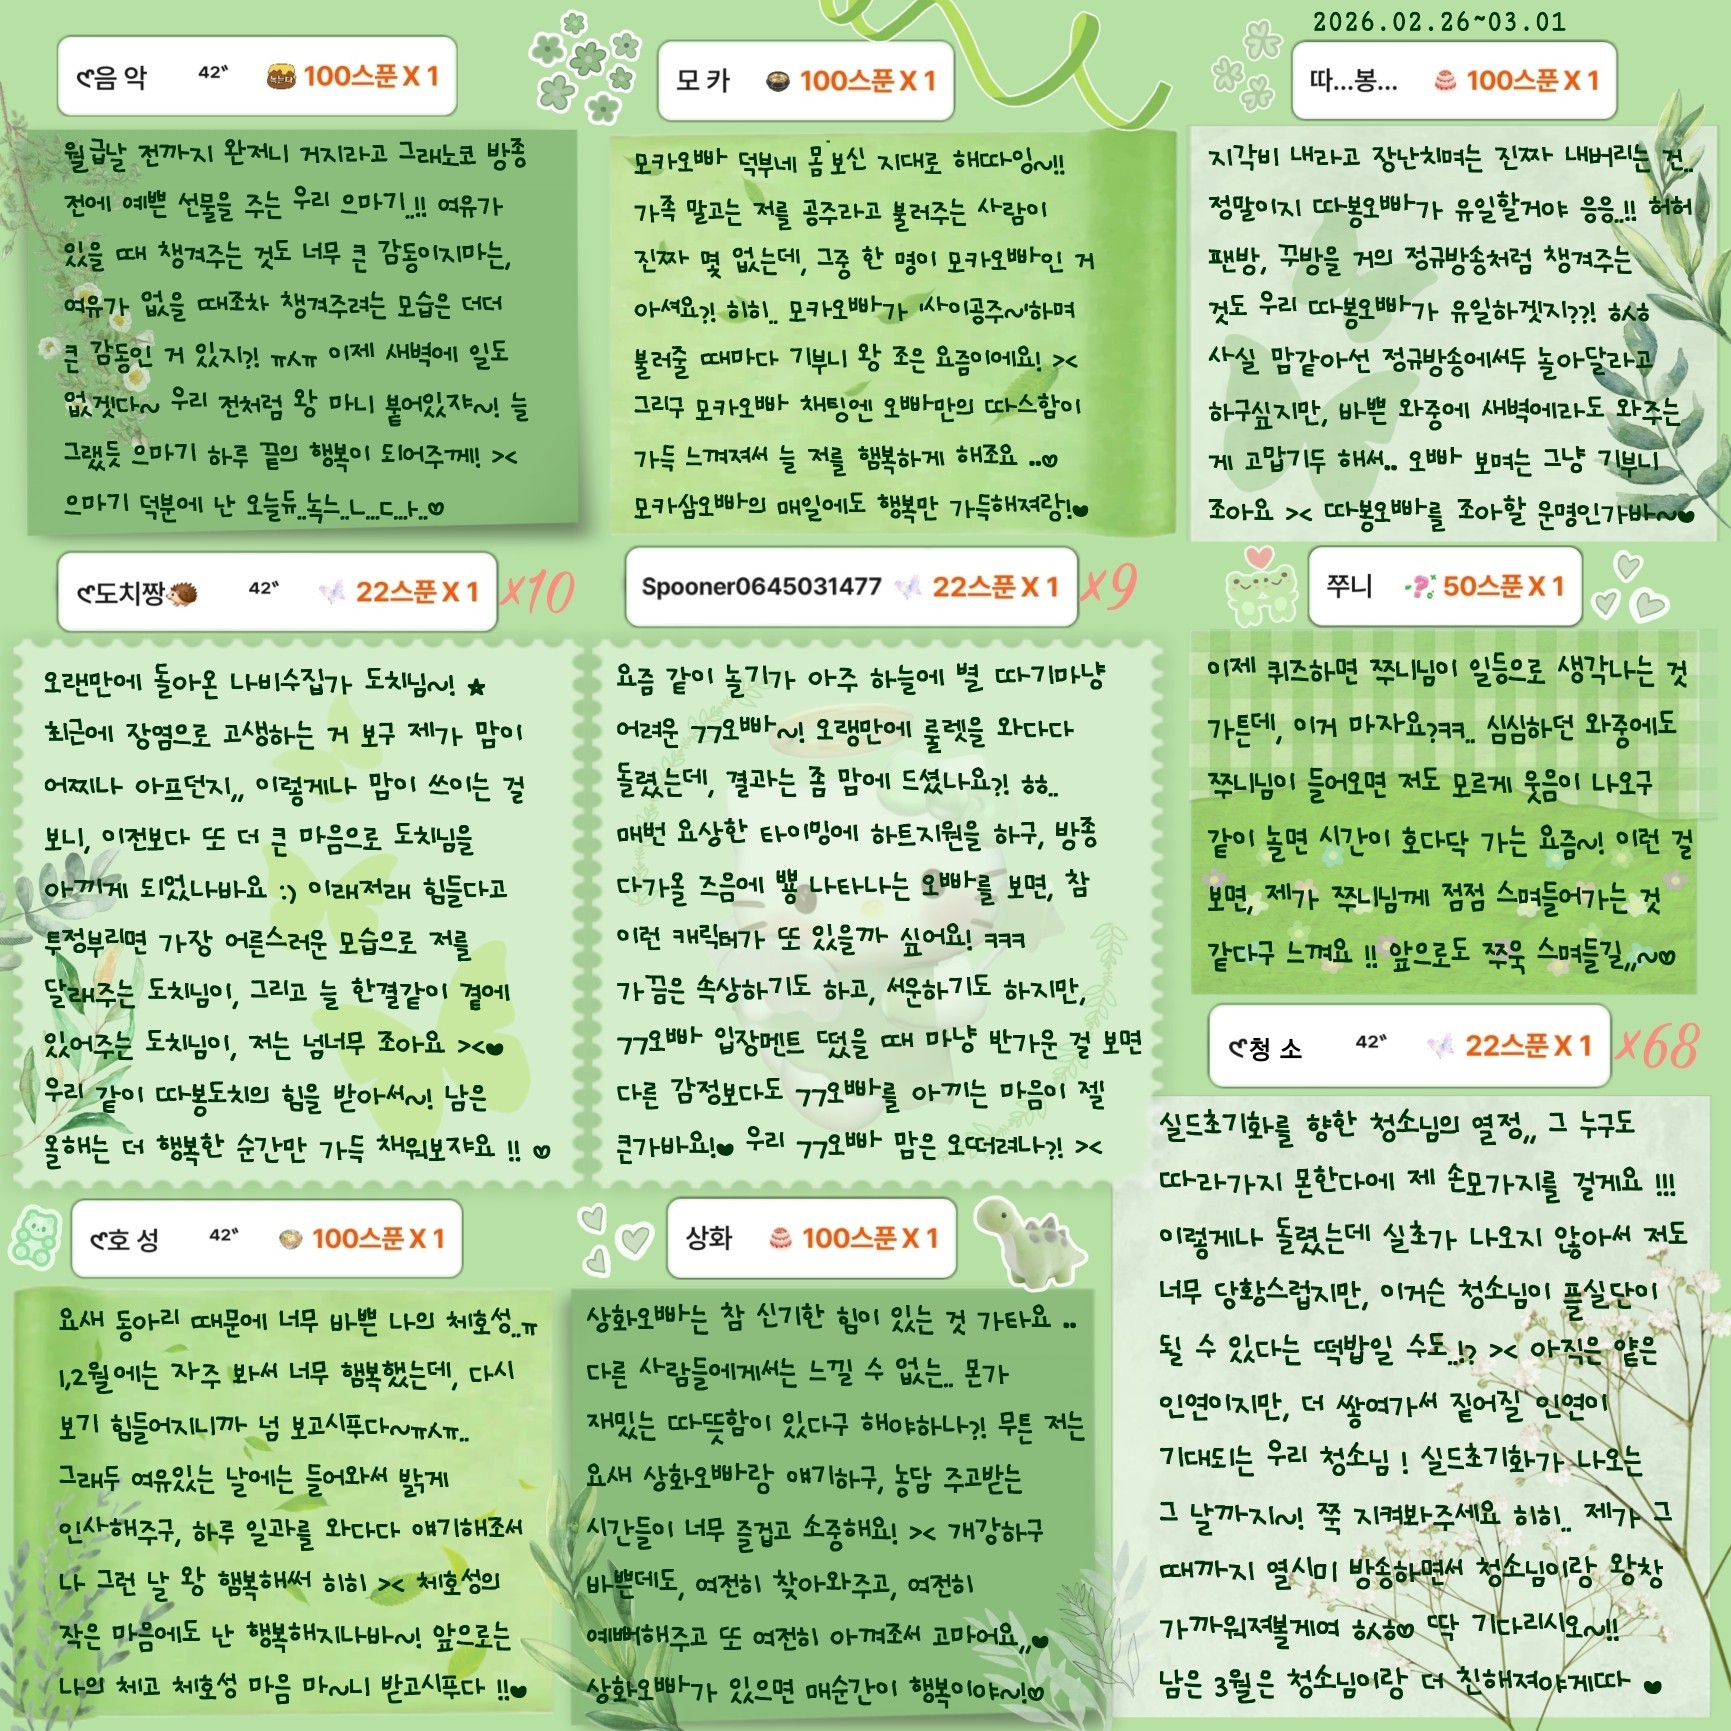 2026.02.26~03.01
ෆ음 악 42" 녹는다 100스푼 X 1
월급날 전까지 완저니 거지라고 그래노코 방종
전에 예쁜 선물을 주는 우리 으마기..!! 여유가
있을 때 챙겨주는 것도 너무 큰 감동이지마는,
여유가 없을 때조차 챙겨주려는 모습은 더더
큰 감동인 거 있지?! ㅠㅅㅠ 이제 새벽에 일도
없겟다~ 우리 전처럼 왕 마니 붙어있쟈~! 늘
그랬듯 으마기 하루 끝의 행복이 되어주께! ><
으마기 덕분에 난 오늘듀..녹느..ㄴ...ㄷ...ㅏ..♡
모 카 100스푼 X 1
모카오빠 덕부네 몸보신 지대로 해따잉~!!
가족 말고는 저를 공주라고 불러주는 사람이
진짜 몇 없는데, 그중 한 명이 모카오빠인 거
아셔요?! 히히.. 모카오빠가 '사이공주~'하며
불러줄 때마다 기부니 왕 조은 요즘이에요! ><
그리구 모카오빠 채팅엔 오빠만의 따스함이
가득 느껴져서 늘 저를 행복하게 해조요 ..♡
모카삼오빠의 매일에도 행복만 가득해져랑!♥
따...봉... 100스푼 X 1
지각비 내라고 장난치며는 진짜 내버리는 건..
정말이지 따봉오빠가 유일할거야 응응..!! 허허
팬방, 꾸방을 거의 정규방송처럼 챙겨주는
것도 우리 따봉오빠가 유일하겟지??! ㅎㅅㅎ
사실 맘같아선 정규방송에서두 놀아달라고
하구싶지만, 바쁜 와중에 새벽에라도 와주는
게 고맙기두 해서.. 오빠 보며는 그냥 기부니
조아요 >< 따봉오빠를 조아할 운명인가바~♥
ෆ도치짱 42" 22스푼 X 1 x10
오랜만에 돌아온 나비수집가 도치님~! ★
최근에 장염으로 고생하는 거 보구 제가 맘이
어찌나 아프던지,, 이렇게나 맘이 쓰이는 걸
보니, 이전보다 또 더 큰 마음으로 도치님을
아끼게 되었나바요 :) 이래저래 힘들다고
투정부리면 가장 어른스러운 모습으로 저를
달래주는 도치님이, 그리고 늘 한결같이 곁에
있어주는 도치님이, 저는 넘너무 조아요 ><♥
우리 같이 따봉도치의 힘을 받아서~! 남은
올해는 더 행복한 순간만 가득 채워보쟈요 !! ♡
Spooner0645031477 22스푼 X 1 x9
요즘 같이 놀기가 아주 하늘에 별 따기마냥
어려운 77오빠~! 오랜만에 룰렛을 와다다
돌렸는데, 결과는 좀 맘에 드셨나요?! ㅎㅎ..
매번 요상한 타이밍에 하트지원을 하구, 방종
다가올 즈음에 뿅 나타나는 오빠를 보면, 참
이런 캐릭터가 또 있을까 싶어요! ㅋㅋㅋ
가끔은 속상하기도 하고, 서운하기도 하지만,
77오빠 입장멘트 떴을 때 마냥 반가운 걸 보면
다른 감정보다도 77오빠를 아끼는 마음이 젤!
큰가바요!♥ 우리 77오빠 맘은 오떠려나?! ><
쮸니 50스푼 X 1
이제 퀴즈하면 쮸니님이 일등으로 생각나는 것
가튼데, 이거 마자요?ㅋㅋ.. 심심하던 와중에도
쮸니님이 들어오면 저도 모르게 웃음이 나오구
같이 놀면 시간이 호다닥 가는 요즘~! 이런 걸
보면, 제가 쮸니님께 점점 스며들어가는 것
같다구 느껴요 !! 앞으로도 쭈욱 스며들길,,~♡
ෆ청 소 42" 22스푼 X 1 x68
실드초기화를 향한 청소님의 열정,, 그 누구도
따라가지 몬한다에 제 손모가지를 걸게요 !!!
이렇게나 돌렸는데 실초가 나오지 않아서 저도
너무 당황스럽지만, 이거슨 청소님이 플실단이
될 수 있다는 떡밥일 수도..!? >< 아직은 얕은
인연이지만, 더 쌓여가서 짙어질 인연이
기대되는 우리 청소님 ! 실드초기화가 나오는
그 날까지~! 쭉 지켜봐주세요 히히.. 제가 그
때까지 열시미 방송하면서 청소님이랑 왕창
가까워져볼게여 ㅎㅅㅎ♡ 딱 기다리시오~!!
남은 3월은 청소님이랑 더 친해져야게따 ♥
ෆ호 성 42" 100스푼 X 1
요새 동아리 때문에 너무 바쁜 나의 체호성..ㅠ
1,2월에는 자주 봐서 너무 행복했는데, 다시
보기 힘들어지니까 넘 보고시푸다~ㅠㅅㅠ..
그래두 여유있는 날에는 들어와서 밝게
인사해주구, 하루 일과를 와다다 얘기해조서
나 그런 날 왕 행복해써 히히 >< 체호성의
작은 마음에도 난 행복해지나바~! 앞으로는
나의 체고 체호성 마음 마~니 받고시푸다 !!♥
상화 100스푼 X 1
상화오빠는 참 신기한 힘이 있는 것 가타요 ..
다른 사람들에게서는 느낄 수 없는.. 몬가
재밌는 따뜻함이 있다구 해야하나?! 무튼 저는
요새 상화오빠랑 얘기하구, 농담 주고받는
시간들이 너무 즐겁고 소중해요! >< 개강하구
바쁜데도, 여전히 찾아와주고, 여전히
예뻐해주고 또 여전히 아껴조서 고마어요,,♥
상화오빠가 있으면 매순간이 행복이야~!♡